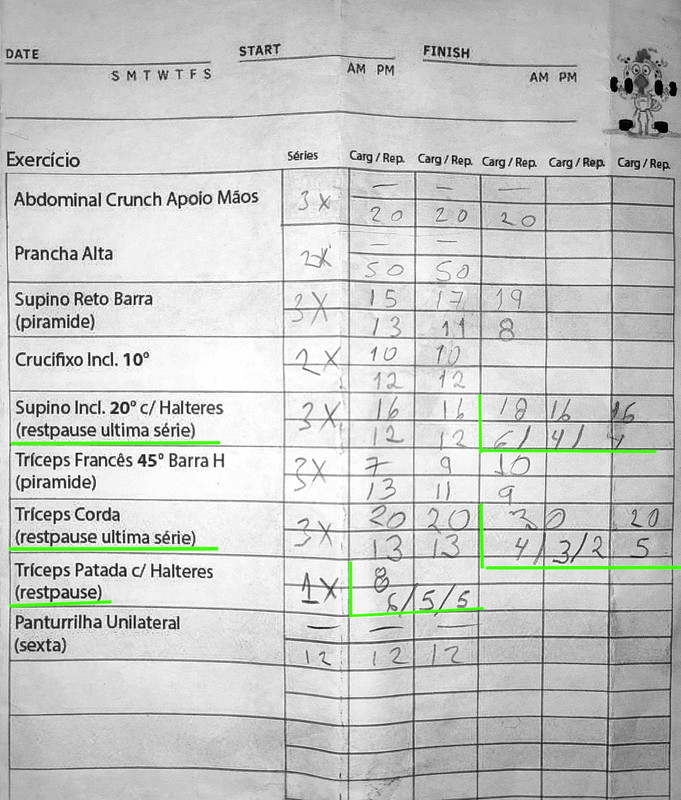 DATE START FINISH
S M T W T F S AM PM AM PM
Exercício Séries Carg / Rep. Carg / Rep. Carg / Rep. Carg / Rep. Carg / Rep.
Abdominal Crunch Apoio Mãos 3X — — —
20 20 20
Prancha Alta 2X — —
50 50
Supino Reto Barra 3X 15 17 19
(piramide) 13 11 8
Crucifixo Incl. 10° 2X 10 10
12 12
Supino Incl. 20° c/ Halteres 3X 16 16 18 16 16
(restpause ultima série) 12 12 6/ 4/
Tríceps Francês 45° Barra H 3X 7 9 10
(piramide) 13 11 9
Tríceps Corda 3X 20 20 30 20
(restpause ultima série) 13 13 4/3/2 5
Tríceps Patada c/ Halteres 1X 8
(restpause) 6/5/5
Panturrilha Unilateral — — —
(sexta) 12 12 12